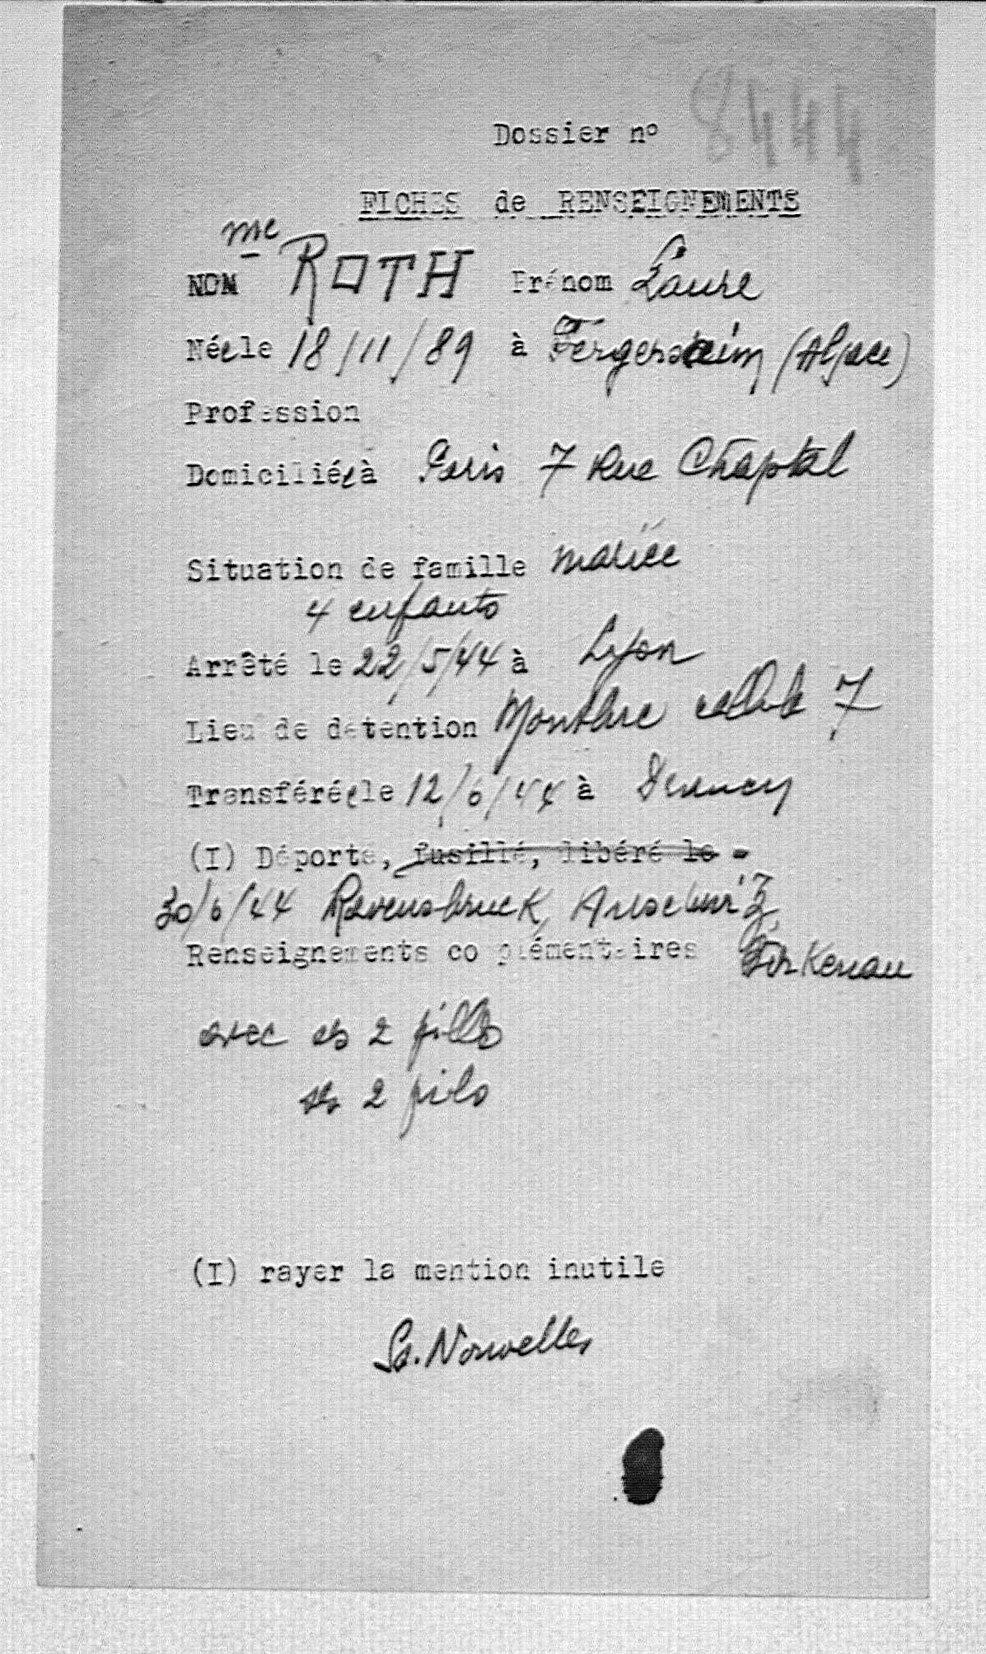 Dossier n° 8444
FICHES de RENSEIGNEMENTS
Me
NOM ROTH Prénom Laure
Née le 18/11/89 à Fergersheim (Alsace)
Profession
Domiciliée à Paris 7 Rue Chaptal
Situation de famille mariée
4 enfants
Arrêté le 22/5/44 à Lyon
Lieu de detention Montluc cellule 7
Transférée le 12/6/44 à Drancy
(I) Déporté, fusillé, libéré le -
30/6/44 Ravensbruck, Auschwitz
Renseignements complémentaires Birkenau
avec ses 2 filles
ses 2 fils
(I) rayer la mention inutile
Ss. Nouvelles